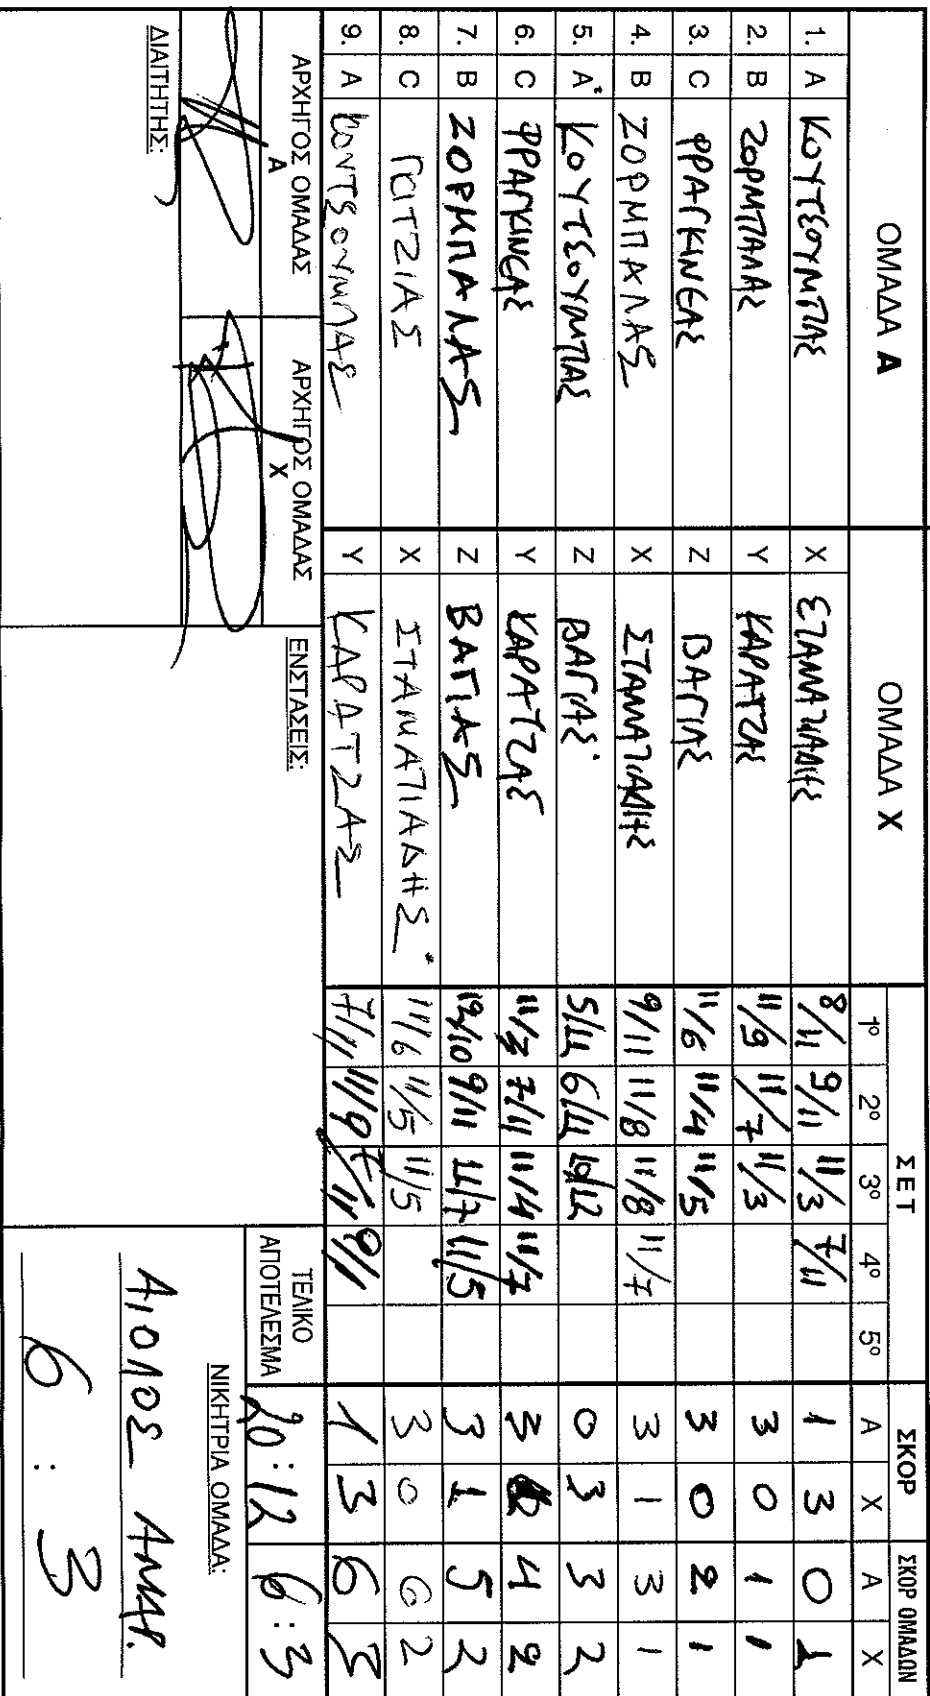 ΟΜΑΔΑ Α ΟΜΑΔΑ Χ ΣΕΤ ΣΚΟΡ ΣΚΟΡ ΟΜΑΔΩΝ
1º 2º 3º 4º 5º Α Χ Α Χ
1. Α ΚΟΥΤΣΟΥΜΠΑΣ Χ ΣΤΑΜΑΤΙΑΔΗΣ 8/11 9/11 11/3 7/11 1 3 0 1
2. Β ΖΟΡΜΠΑΛΑΣ Υ ΚΑΡΑΤΖΑΣ 11/9 11/7 11/3 3 0 1 1
3. C ΦΡΑΓΚΙΝΕΑΣ Ζ ΒΑΓΙΑΣ 11/6 11/4 11/5 3 0 2 1
4. Β ΖΟΡΜΠΑΛΑΣ Χ ΣΤΑΜΑΤΙΑΔΗΣ 9/11 11/8 11/8 11/7 3 1 3 1
5. Α ΚΟΥΤΣΟΥΜΠΑΣ Ζ ΒΑΓΙΑΣ 5/11 6/11 10/12 0 3 3 2
6. C ΦΡΑΓΚΙΝΕΑΣ Υ ΚΑΡΑΤΖΑΣ 11/3 7/11 11/4 11/7 3 4 2
7. Β ΖΟΡΜΠΑΛΑΣ Ζ ΒΑΓΙΑΣ 12/10 9/11 11/7 11/5 3 1 5 2
8. C ΓΚΑΤΖΙΑΣ Χ ΣΤΑΜΑΤΙΑΔΗΣ 11/6 11/5 11/5 3 0 6 2
9. Α ΚΟΥΤΣΟΥΜΠΑΣ Υ ΚΑΡΑΤΖΑΣ 7/11 11/9 7/11 9/11 1 3 6 3
ΑΡΧΗΓΟΣ ΟΜΑΔΑΣ Α ΑΡΧΗΓΟΣ ΟΜΑΔΑΣ Χ ΕΝΣΤΑΣΕΙΣ: ΤΕΛΙΚΟ ΑΠΟΤΕΛΕΣΜΑ 20:12 6:3
ΝΙΚΗΤΡΙΑ ΟΜΑΔΑ:
ΑΙΟΛΟΣ ΑΜΑΡ.
ΔΙΑΙΤΗΤΗΣ:
6 : 3